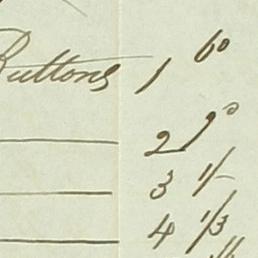 Buttons 1 6º
2 9º
3 1/-
4 1/3